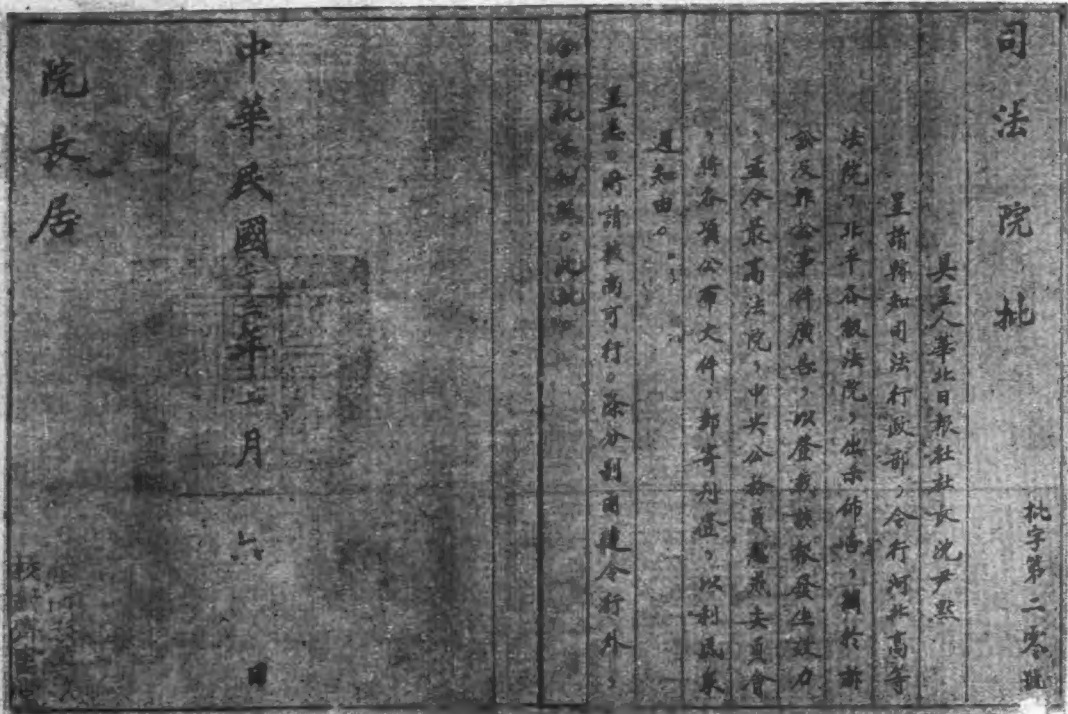 司法院批
批字第二零號
具呈人華北日報社社長沈尹默
呈請轉知司法行政部,令行河北高等
法院,北平各級法院,出示佈告,關於訴
訟及非訟事件廣告,以登載該報發生效力
,並令最高法院,中央公務員懲戒委員會
,將各項公布文件,郵寄刊登,以利民眾
週知由。
呈悉。所請較尚可行。除分別函達令行外,
合行批示知照。此批
中華民國二十三年十二月六日
院長居
校對